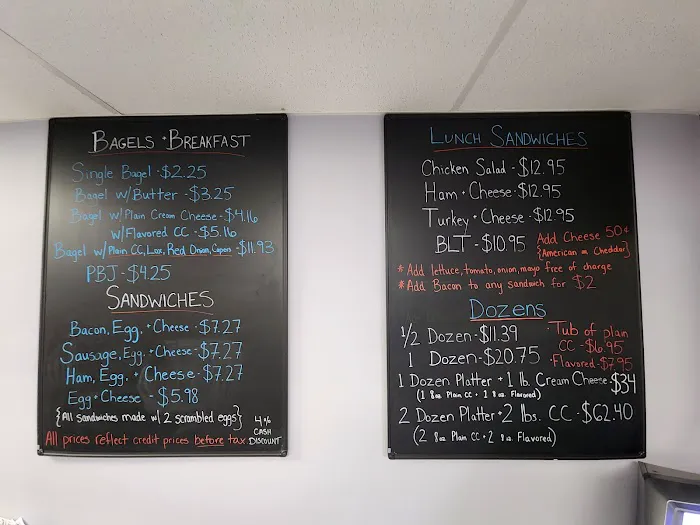 BAGELS + BREAKFAST
Single Bagel - $2.25
Bagel w/Butter - $3.25
Bagel w/Plain Cream Cheese - $4.16
w/Flavored CC - $5.16
Bagel w/Plain CC, Lox, Red Onion, Capers - $11.93
PBJ - $4.25
SANDWICHES
Bacon, Egg, + Cheese - $7.27
Sausage, Egg, + Cheese - $7.27
Ham, Egg, + Cheese - $7.27
Egg + Cheese - $5.98
{All sandwiches made w/ 2 scrambled eggs}
All prices reflect credit prices before tax.
4% CASH DISCOUNT
LUNCH SANDWICHES
Chicken Salad - $12.95
Ham + Cheese - $12.95
Turkey + Cheese - $12.95
BLT - $10.95
Add Cheese 50¢
{American or Cheddar}
* Add lettuce, tomato, onion, mayo free of charge
* Add Bacon to any sandwich for $2
Dozens
1/2 Dozen - $11.39
1 Dozen - $20.75
• Tub of plain
CC - $6.95
• Flavored - $7.95
1 Dozen Platter + 1 lb. Cream Cheese - $34
(1 8oz Plain CC + 1 8oz. Flavored)
2 Dozen Platter + 2 lbs. CC - $62.40
(2 8oz Plain CC + 2 8oz. Flavored)